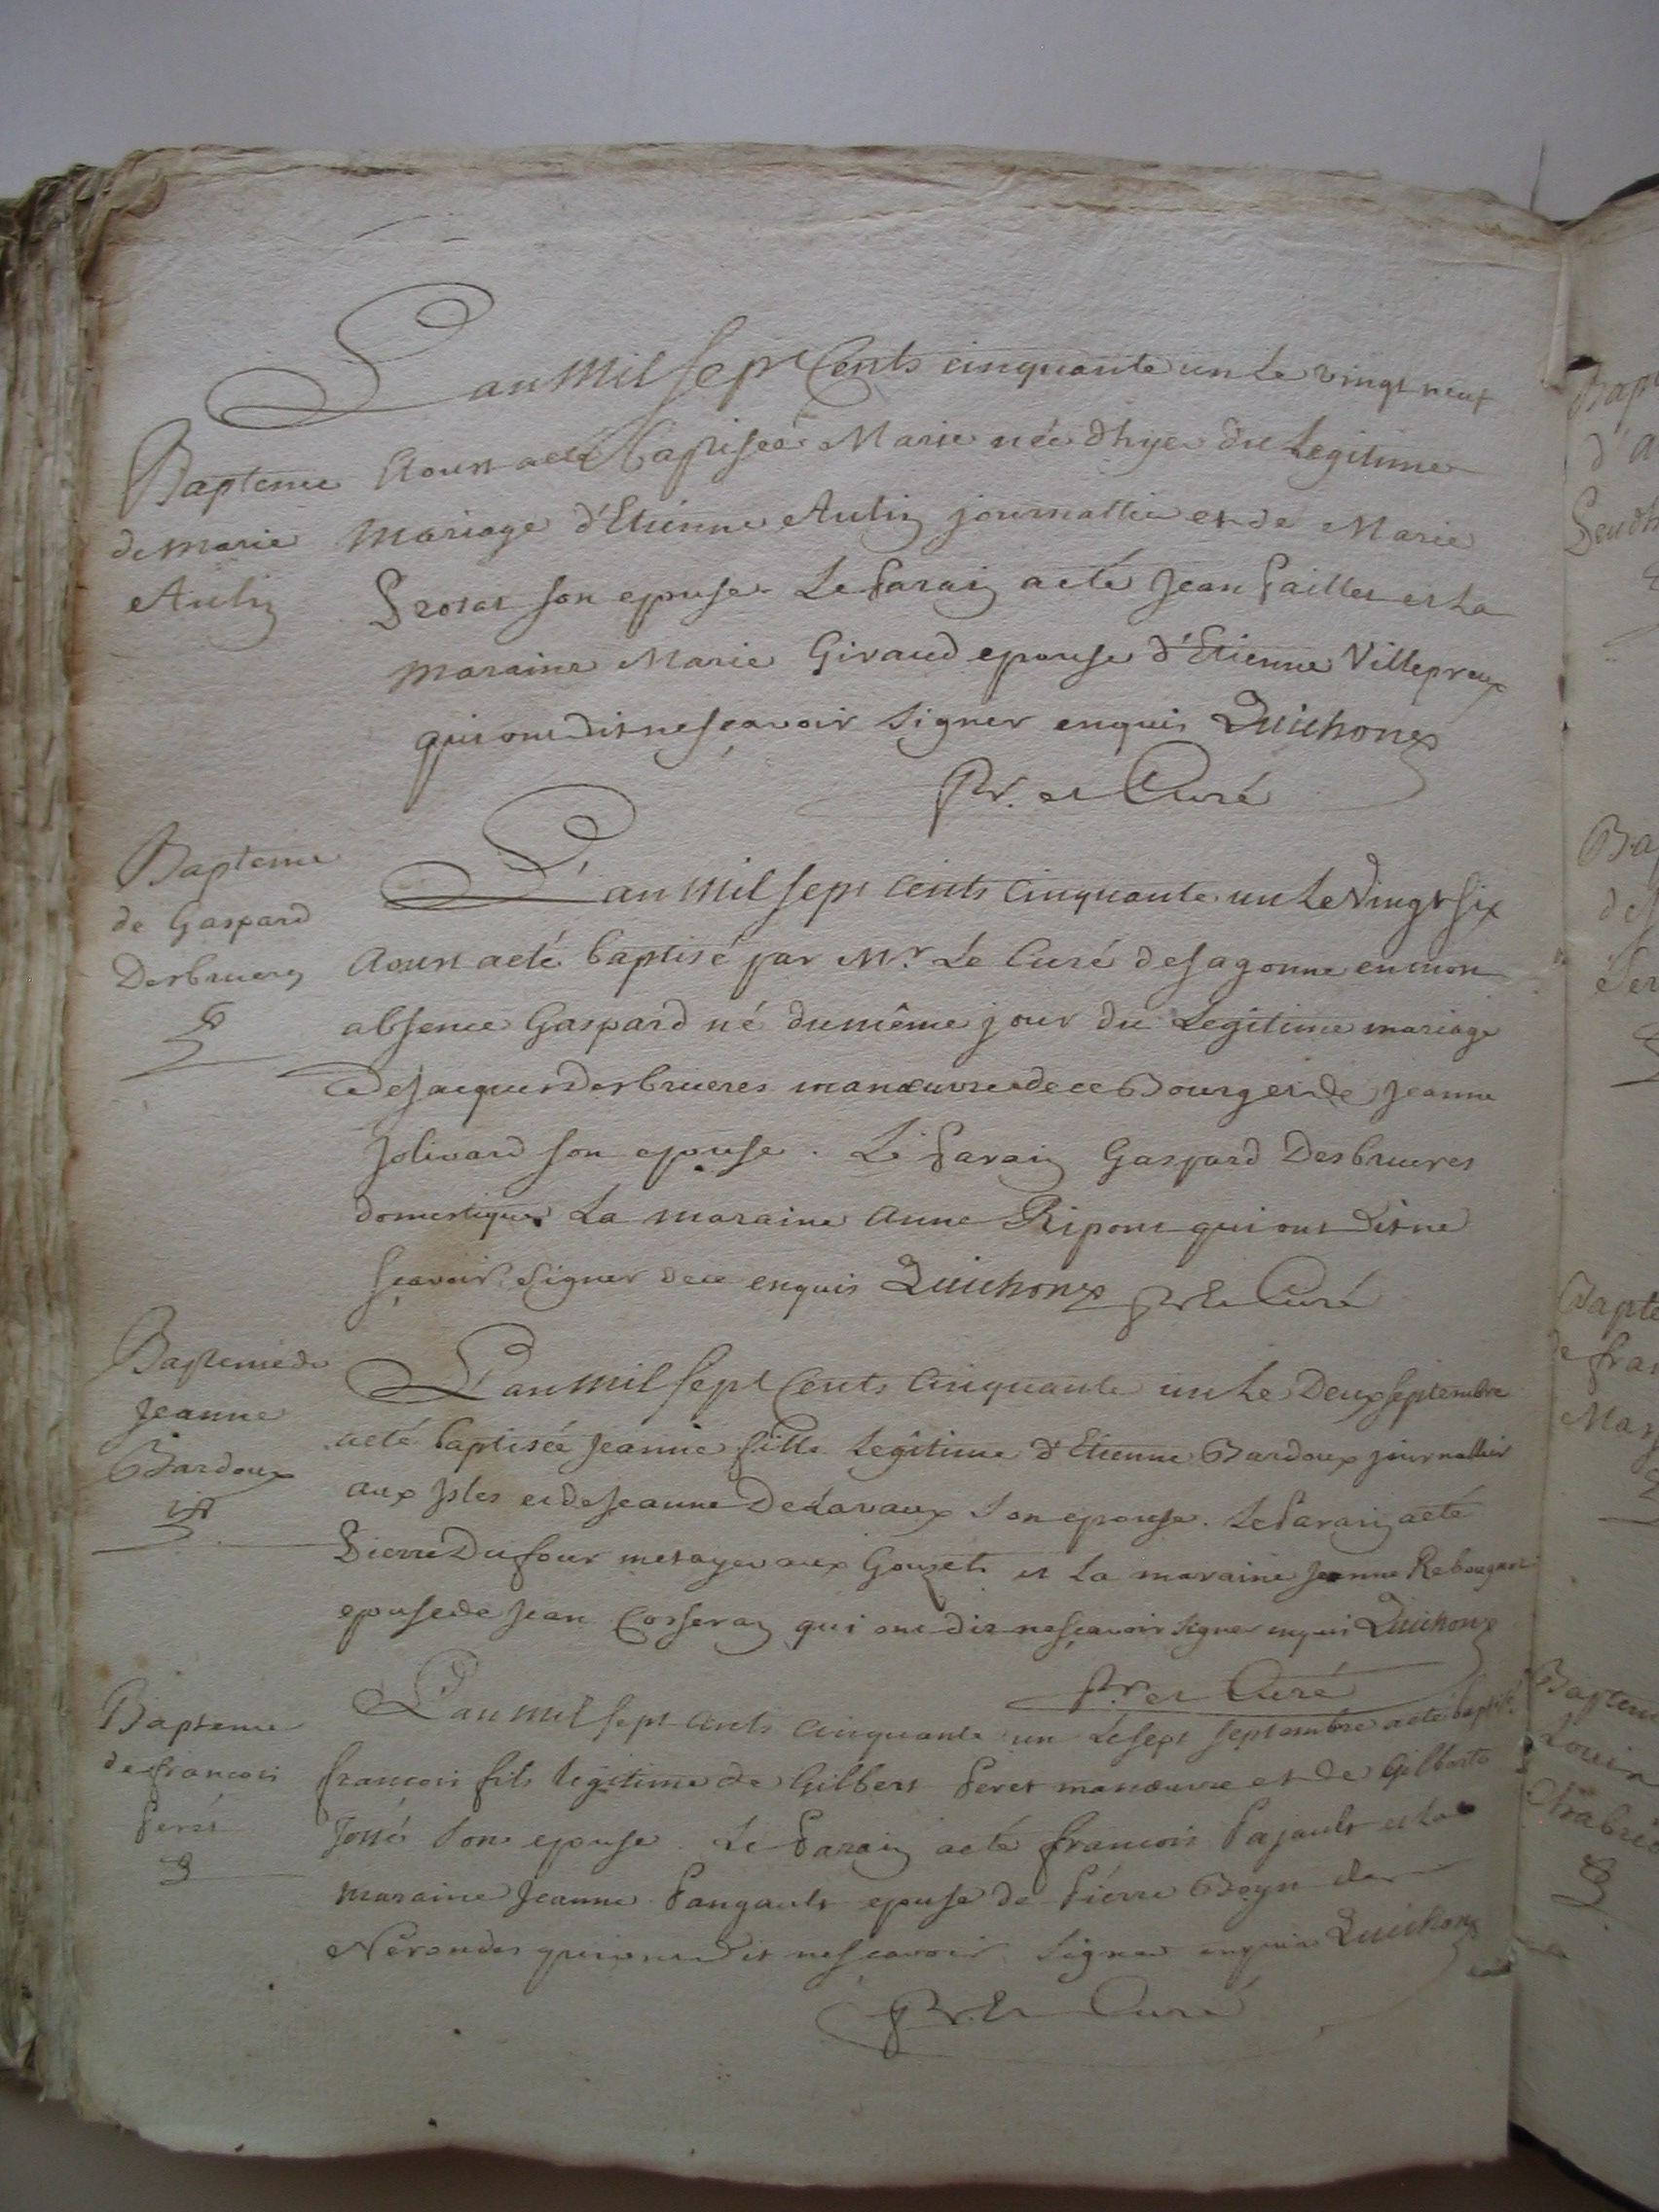 L'an mil sept Cents cinquante un Le vingt neuf
Bapteme
de marie
Aulin
Aoust a eté baptisée Marie née d'hyer du Legitime
mariage d'Etienne Aulin journallier et de Marie
son epouse. Le Parain a eté Jean Pailler et La
maraine Marie Giraud epouse d'Etienne Villepreux
qui ont dit ne scavoir signer enquis Quichon
Pr. et Curé
Bapteme
de Gaspard
Desbrueres
L'an mil sept cents Cinquante un Le Vingt six
Aoust a eté baptisé par Mr. Le Curé de Sagonne en mon
absence Gaspard né du même jour du Legitime mariage
de Jacques Desbrueres manœuvre de ce Bourg et de Jeanne
Jolivard son epouse. Le Parain Gaspard Desbrueres
domestique La maraine Anne Ripont qui ont dit ne
sçavoir signer de ce enquis Quichon Pr Et Curé
Bapteme de
Jeanne
Bardoux
L'an mil sept Cents Cinquante un Le Deux septembre
a eté baptisée Jeanne fille Legitime d'Etienne Bardoux journallier
aux Isles et de Jeanne Delavaux son epouse. Le Parain a eté
Pierre Dufour metayer aux Gouzets et La maraine Jeanne
epouse de Jean qui ont dit ne sçavoir signer enquis Quichon
Pr. et Curé
Bapteme
de francois
Peret
L'an mil sept cents cinquante un Le sept septembre a eté baptisé
francois fils legitime de Gilbert Peret manœuvre et de Gilberte
Jossé son epouse. Le Parain a eté francois Pajault et La
maraine Jeanne Pangault epouse de Piérre Boyn de
Nérondes qui ont dit ne scavoir signer enquis Quichon
Pr. Et Curé